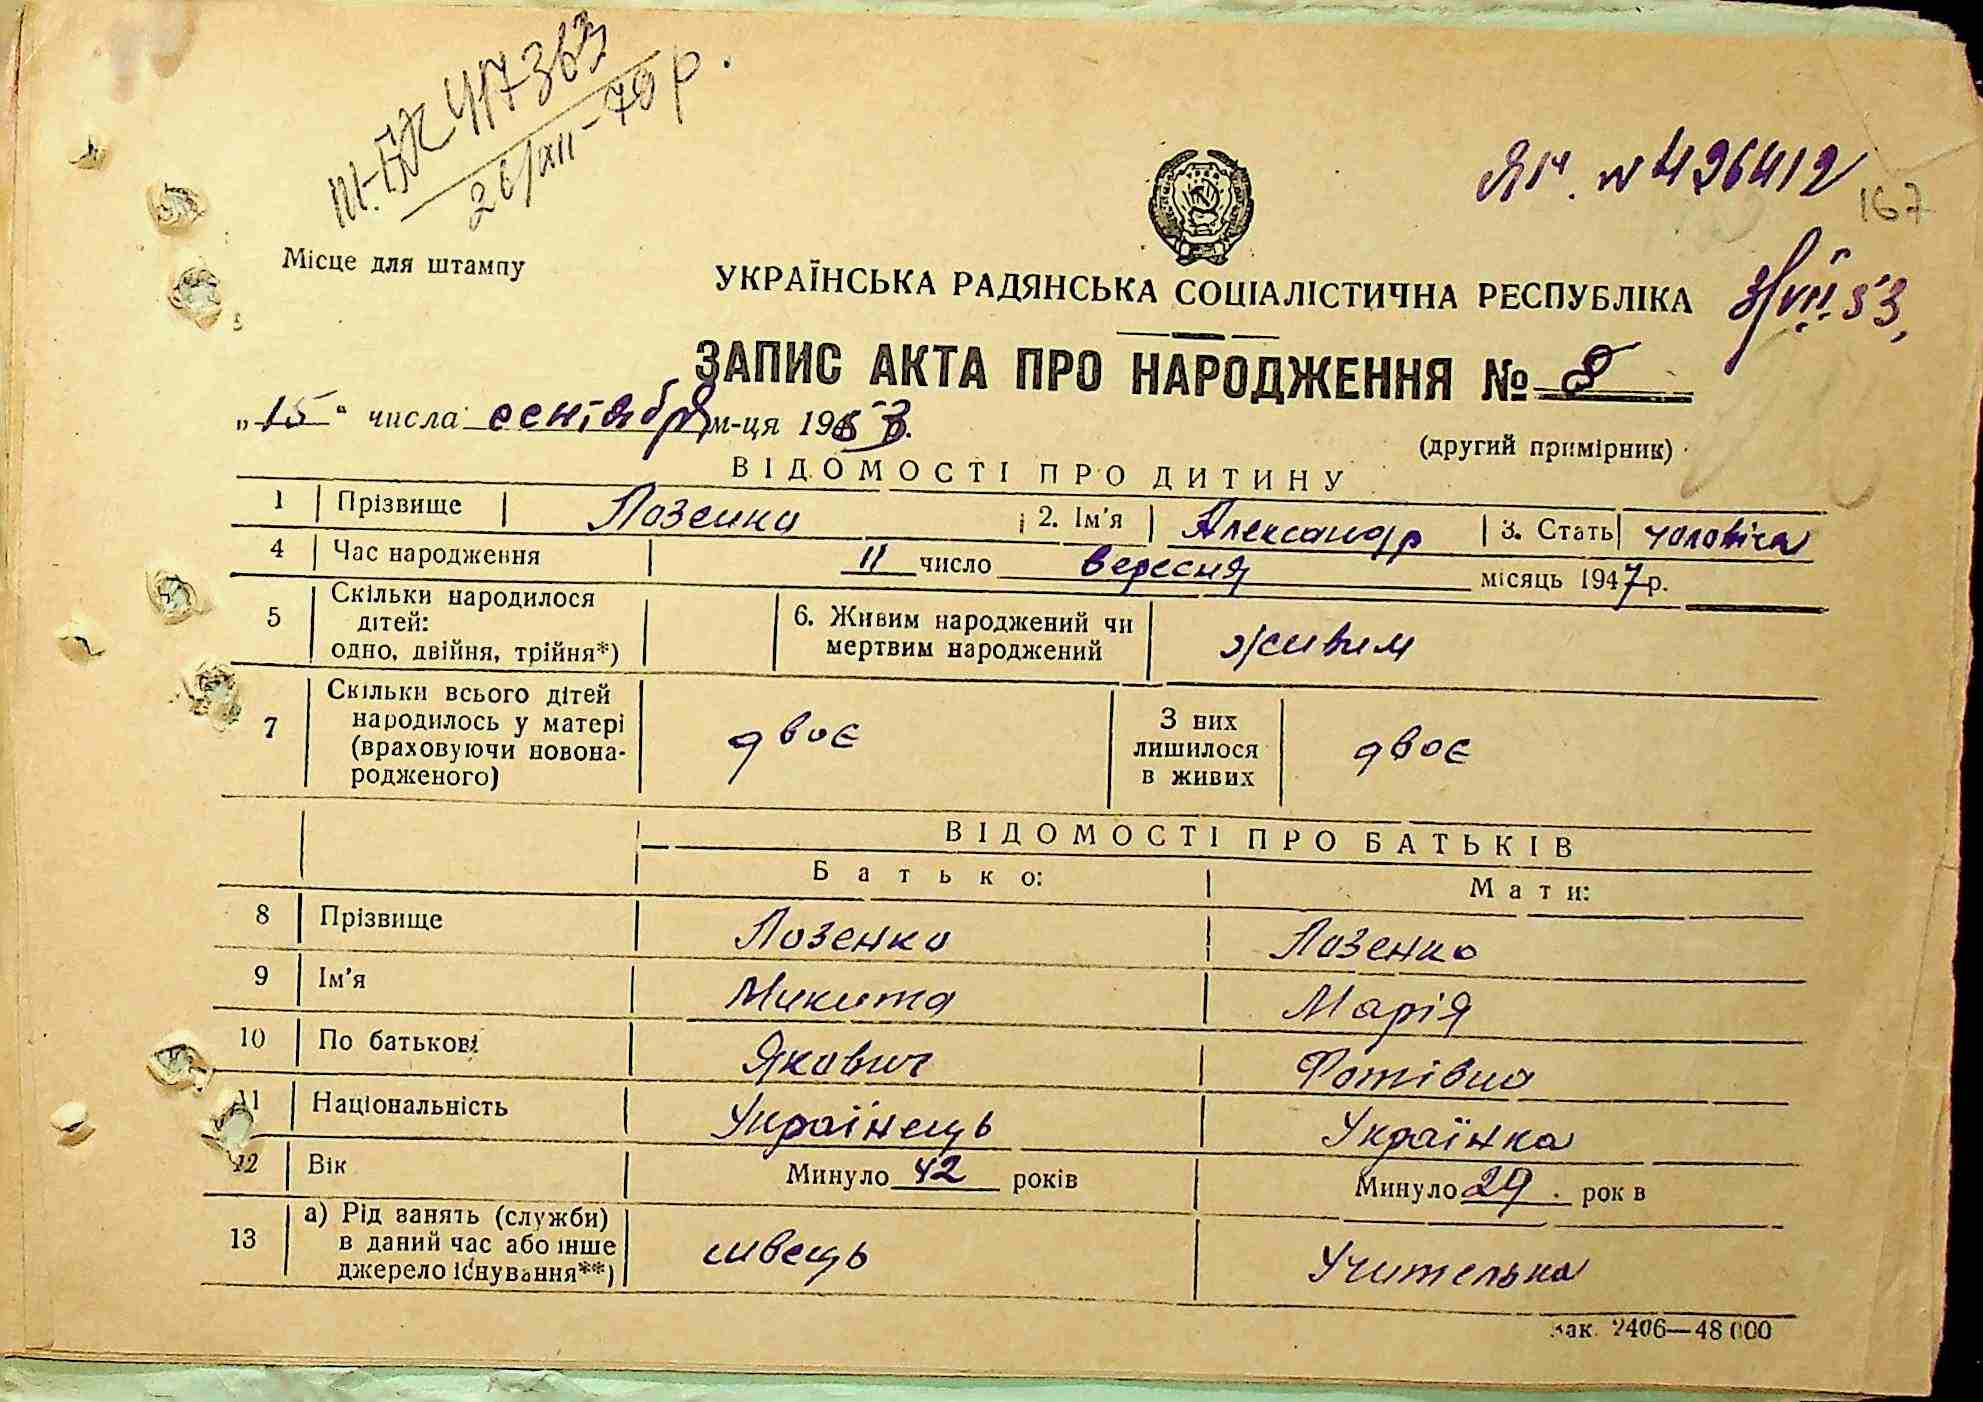 ІІІ-БК 417363
26/XII-79 р.
ЯГ. № 436412
167
Місце для штампу
УКРАЇНСЬКА РАДЯНСЬКА СОЦІАЛІСТИЧНА РЕСПУБЛІКА
3/VII.53.
ЗАПИС АКТА ПРО НАРОДЖЕННЯ № 8
„15“ числа сентября м-ця 1953.
(другий примірник)
ВІДОМОСТІ ПРО ДИТИНУ
1 Прізвище Лозенко 2. Ім'я Александр 3. Стать чоловіча
4 Час народження 11 число вересня місяць 1947р.
5 Скільки народилося дітей: одно, двійня, трійня*) 6. Живим народжений чи мертвим народжений живим
7 Скільки всього дітей народилось у матері (враховуючи новона-родженого) двоє З них лишилося в живих двоє
ВІДОМОСТІ ПРО БАТЬКІВ
Батько: Мати:
8 Прізвище Лозенко Лозенко
9 Ім'я Микита Марія
10 По батькові Якович Фотівна
11 Національність Українець Українка
12 Вік Минуло 42 років Минуло 29. рок в
13 а) Рід занять (служби) в даний час або інше джерело існування**) швець Учителька
зак. 2406—48 000